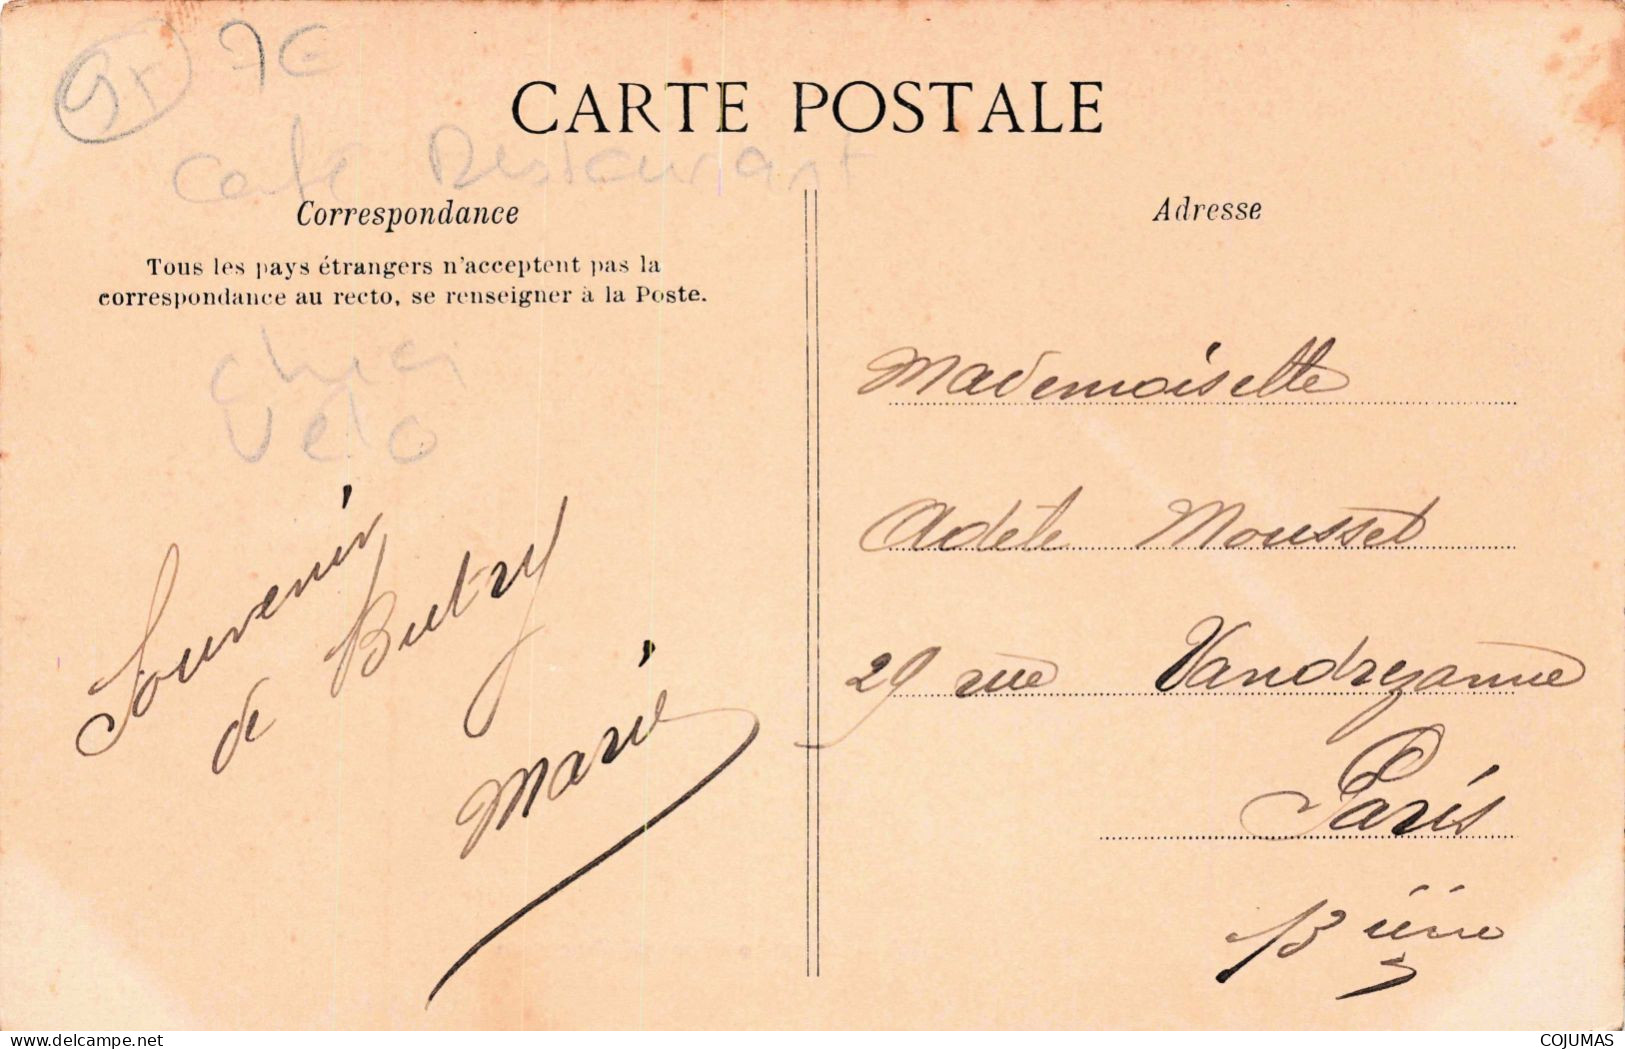 95 7€
CARTE POSTALE
Café Restaurant
Correspondance
Tous les pays étrangers n'acceptent pas la
correspondance au recto, se renseigner à la Poste.
Vélo
Souvenir
de Butry
Marie
Adresse
Mademoiselle
Adèle Mousset
29 rue Vandrezanne
Paris
13 ième
delcampe.net
COJUMAS